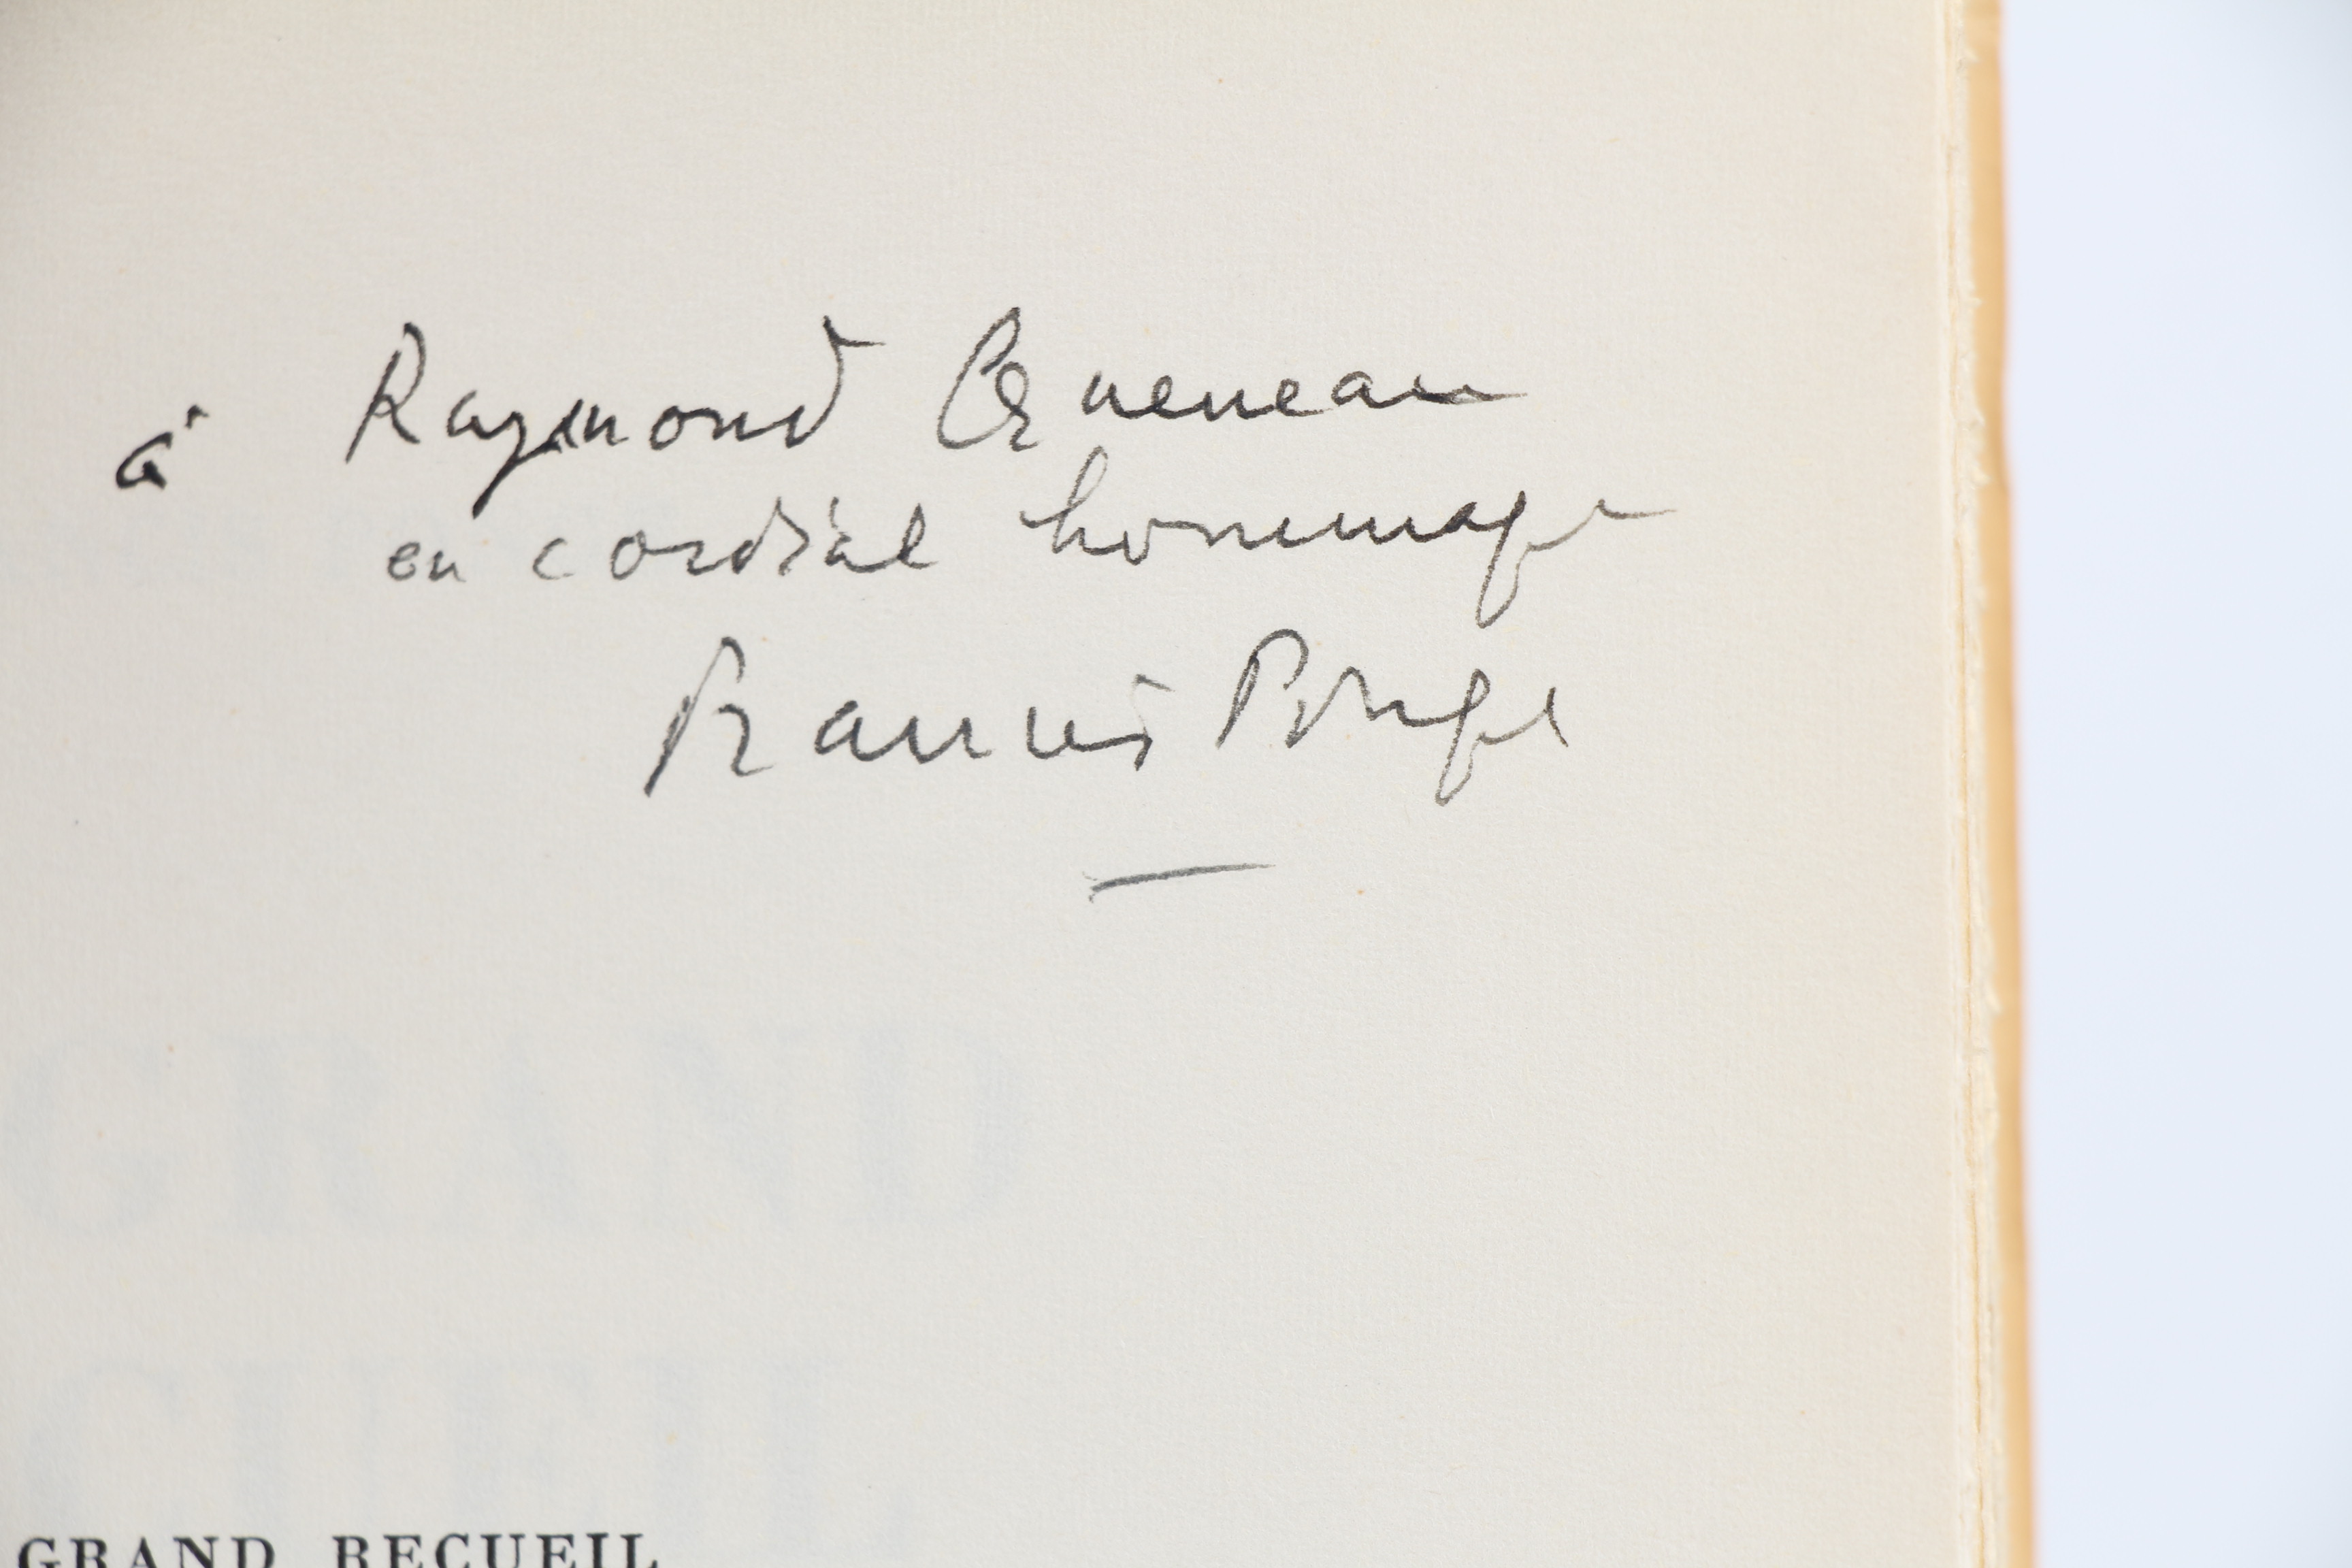 à Raymond Queneau
en cordial hommage
Francis Ponge
GRAND
CUEIL
GRAND RECUEIL